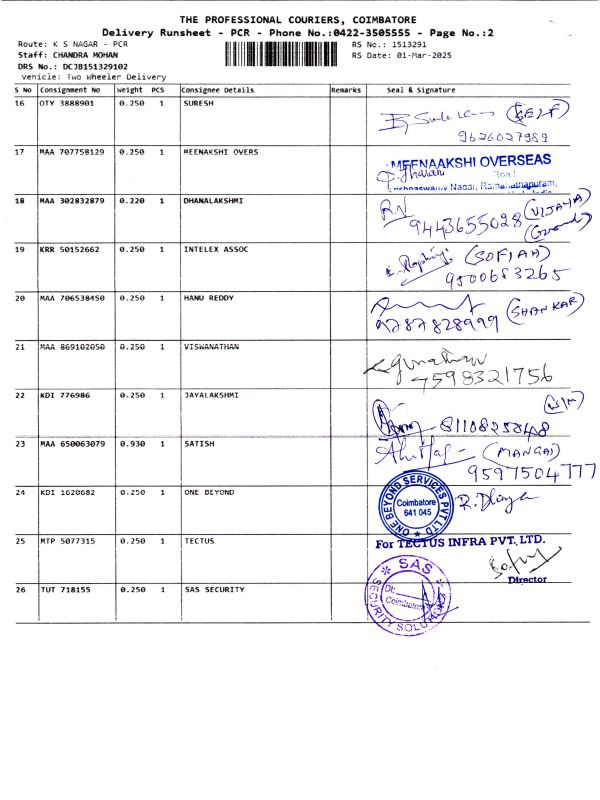 THE PROFESSIONAL COURIERS, COIMBATORE
Delivery Runsheet - PCR - Phone No.:0422-3505555 - Page No.:2
Route: K S NAGAR - PCR
RS No.: 1513291
Staff: CHANDRA MOHAN
RS Date: 01-Mar-2025
DRS No.: DCJB151329102
Vehicle: Two Wheeler Delivery
S No Consignment No Weight PCS Consignee Details Remarks Seal & Signature
16 OTY 3888901 0.250 1 SURESH
(SELF)
9626027989
17 MAA 707758129 0.250 1 MEENAKSHI OVERS
MEENAAKSHI OVERSEAS
Road
Nagar, Ramanathapuram,
18 MAA 302832879 0.220 1 DHANALAKSHMI
9443655028 (VIJAYA)
19 KRR 50152662 0.250 1 INTELEX ASSOC
(SOFIAA)
9500683265
20 MAA 706538450 0.250 1 HANU REDDY
9787828999 (SHANKAR)
21 MAA 869102050 0.250 1 VISWANATHAN
7598321756
22 KDI 776986 0.250 1 JAYALAKSHMI
23 MAA 650063079 0.930 1 SATISH
(MANGAI)
9597504777
24 KDI 1620682 0.250 1 ONE BEYOND
ONE BEYOND SERVICES PVT LTD
Coimbatore
641 045
25 MTP 5077315 0.250 1 TECTUS
For TECTUS INFRA PVT. LTD.
Director
26 TUT 718155 0.250 1 SAS SECURITY
SAS
SECURITY SOLUTIONS
Dt:
Coimbatore